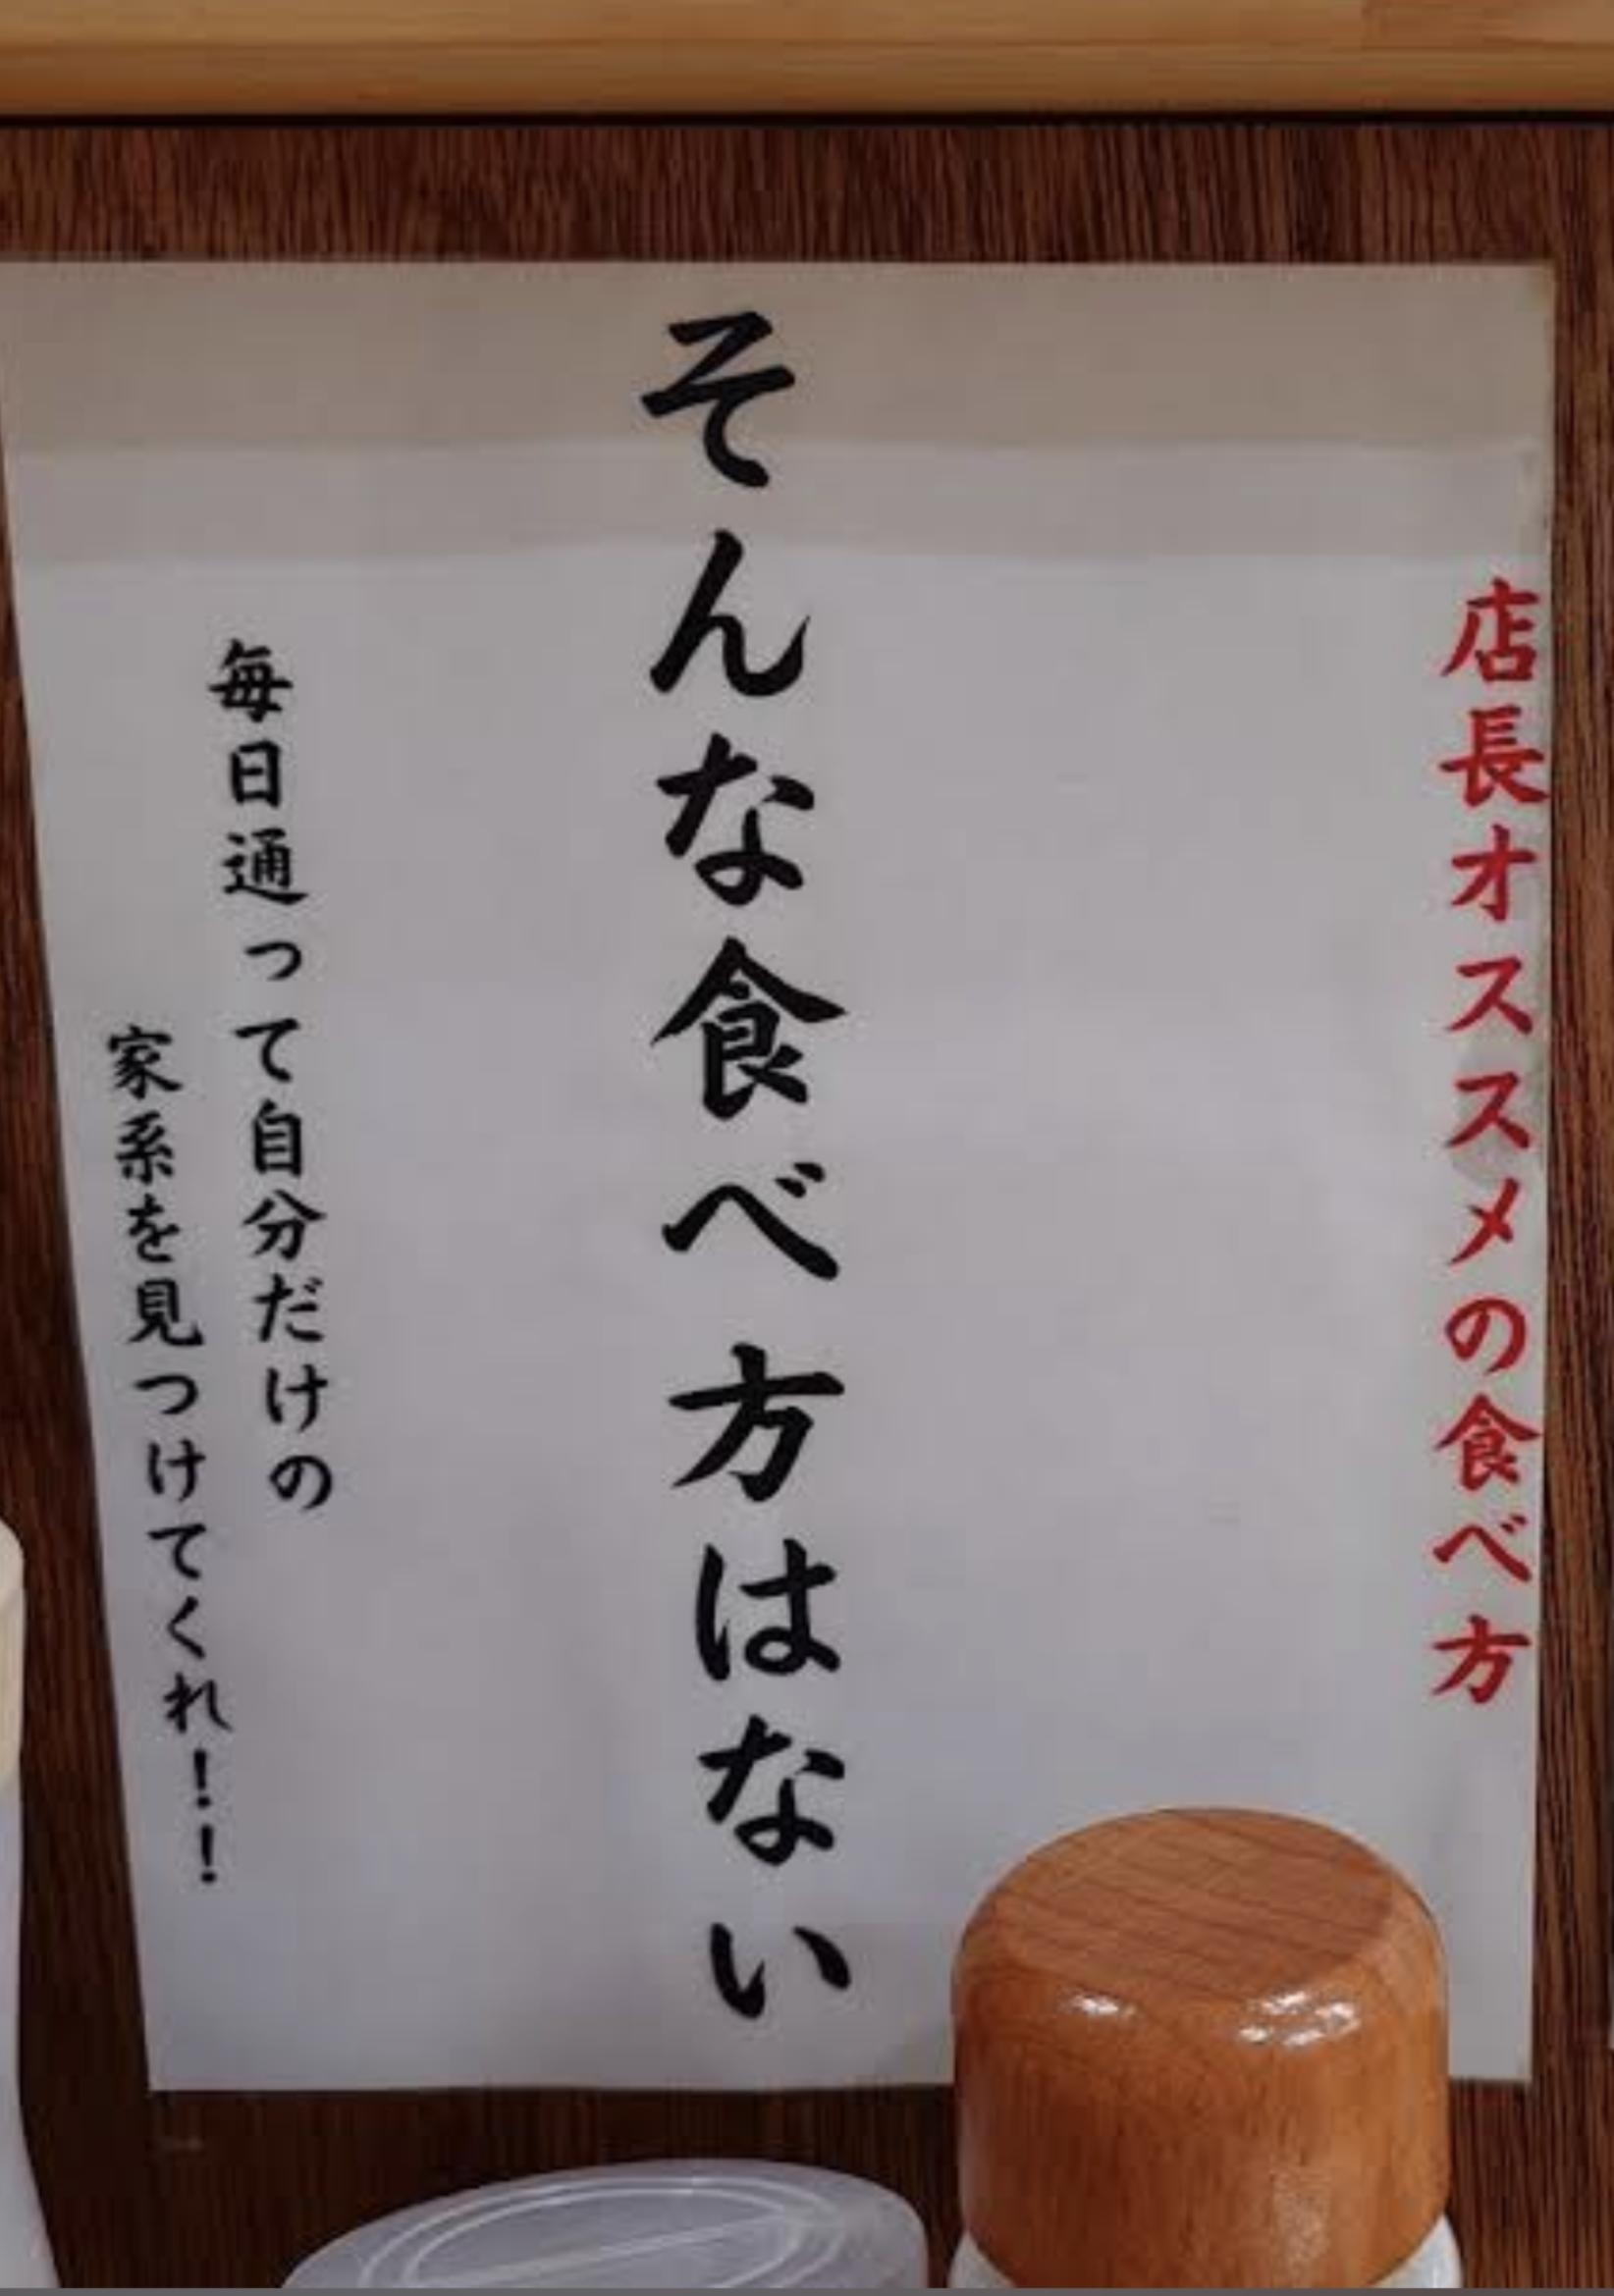 店長オススメの食べ方
そんな食べ方はない
毎日通って自分だけの
家系を見つけてくれ！！